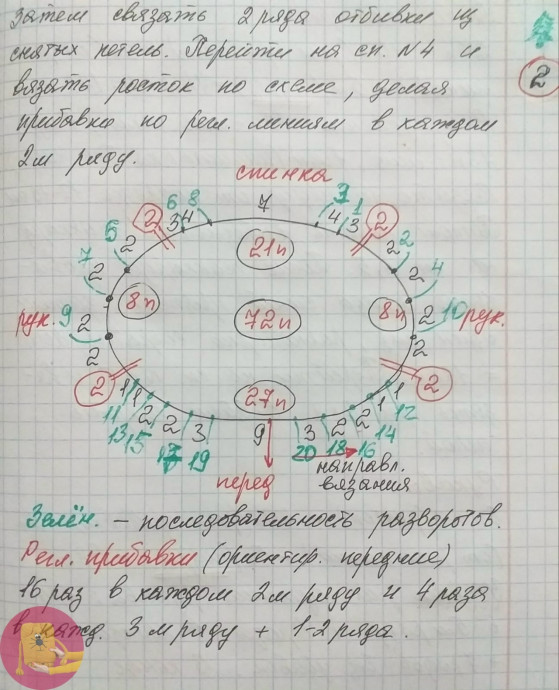 Затем связать 2 ряда отбивки из
снятых петель. Перейти на сп. N4 и
вязать росток по схеме, делая
прибавки по регл. линиям в каждом
2м ряду.
2
спинка
6 8 7 3 1
2 3 4 4 3 2
5 2 21п 2 2
7 2 2 4
8п 8п
рук. 9 2 72п 2 10 рук.
2 2
2 27п 2
1 1 1 1
11 2 2 3 9 3 2 2 12
13 15 17 19 20 18 16 14
перед направл.
вязания
Зелён. – последовательность разворотов.
Регл. прибавки (ориентир. передние)
16 раз в каждом 2м ряду и 4 раза
в кажд. 3м ряду + 1-2 ряда.